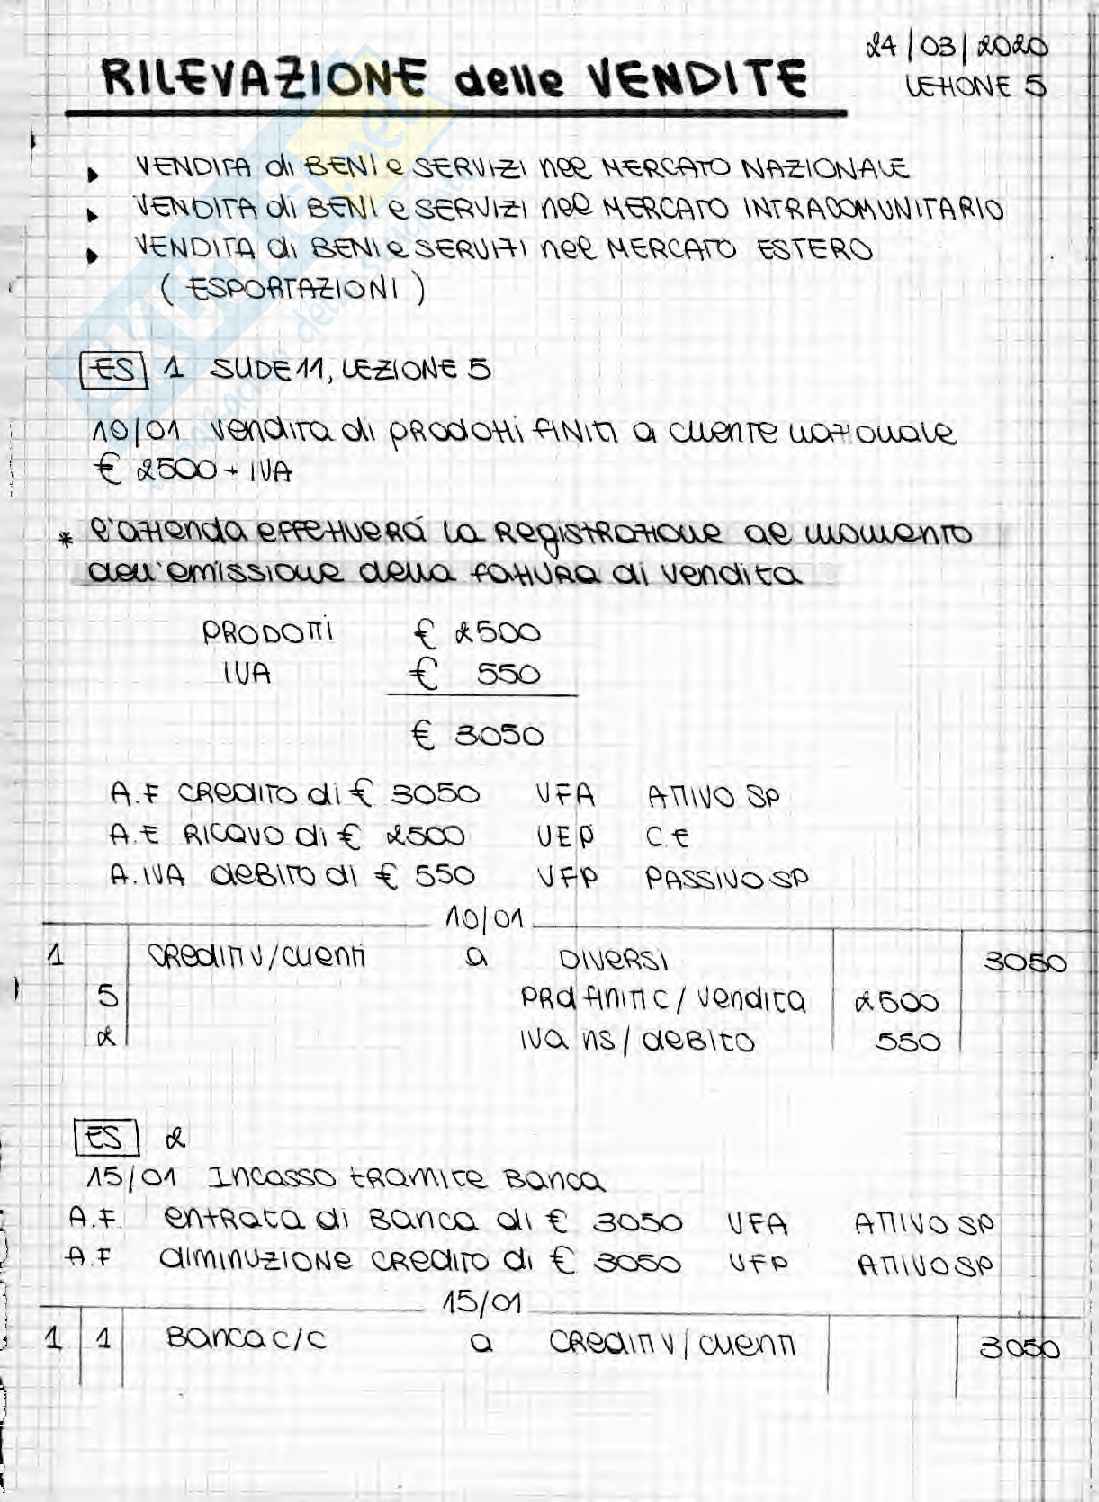 24/03/2020
RILEVAZIONE delle VENDITE
LEZIONE 5
VENDITA di BENI e SERVIZI nel MERCATO NAZIONALE
VENDITA di BENI e SERVIZI nel MERCATO INTRACOMUNITARIO
VENDITA di BENI e SERVIZI nel MERCATO ESTERO
(ESPORTAZIONI)
ES 1 SLIDE 11, LEZIONE 5
10/01 vendita di prodotti finiti a cliente nazionale
€ 2500 + IVA
* l'azienda effettuerá la registrazione al momento
dell'emissione della fattura di vendita
PRODOTTI € 2500
IVA € 550
€ 3050
A.F credito di € 3050 VFA ATTIVO SP
A.E RICAVO di € 2500 VEP C.E
A.IVA debito di € 550 VFP PASSIVO SP
10/01
1 crediti v/clienti a DIVERSI 3050
5 PRd finiti c/vendita 2500
2 IVA ns/debito 550
ES 2
15/01 Incasso tramite Banca
A.F. entrata di Banca di € 3050 VFA ATTIVO SP
A.F diminuzione credito di € 3050 VFP ATTIVO SP
15/01
1 1 Banca c/c a crediti v/clienti 3050